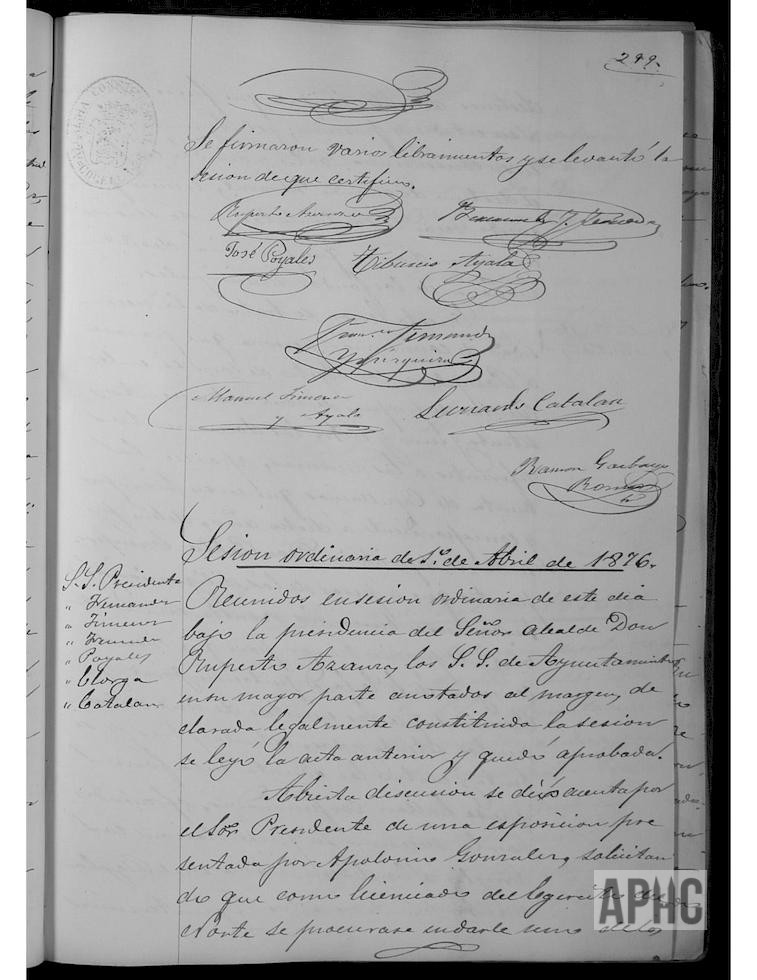 249.
Se firmaron varios libramientos y se levantó la
sesion de que certifico.
Ruperto
José Poyales
Tiburcio Ayala
Manuel Jimenez
y Ayala
Leonardo Catalan
Ramon Garbayo
Sesion ordinaria de 1.º de Abril de 1876.
S.S. Presidente
" Fernandez
" Jimenez
" Poyales
" Clorga
" Catalan
Reunidos en sesion ordinaria de este dia
bajo la presidencia del Señor Alcalde Don
Ruperto Azcona, los S.S. de Ayuntamiento
en su mayor parte anotados al margen, de
clarada legalmente constituida la sesion
se leyó la acta anterior y quedó aprobada.
Abierta discusion se dió cuenta por
el Sor. Presidente de una esposicion pre
sentada por Apolonio Gonzalez, solicitan
do que como licenciado del Egercito del
Norte se procurase indarle uno de los
APHC